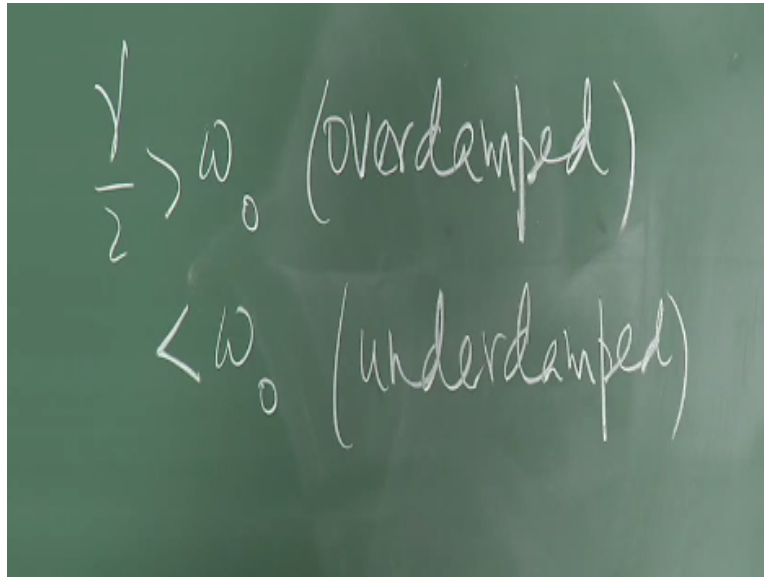 γ/2 > ω₀ (overdamped)
< ω₀ (underdamped)